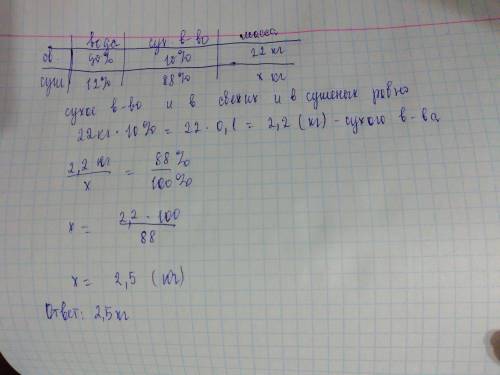 вода сух в-во масса
св. 90% 10% 22 кг
суш 12% 88% х кг
сухое в-во и в свежих и в сушеных ровно
22кг · 10% = 22 · 0,1 = 2,2 (кг) - сухого в-ва
2,2 кг / х = 88% / 100%
х = 2,2 · 100 / 88
х = 2,5 (кг)
Ответ: 2,5кг